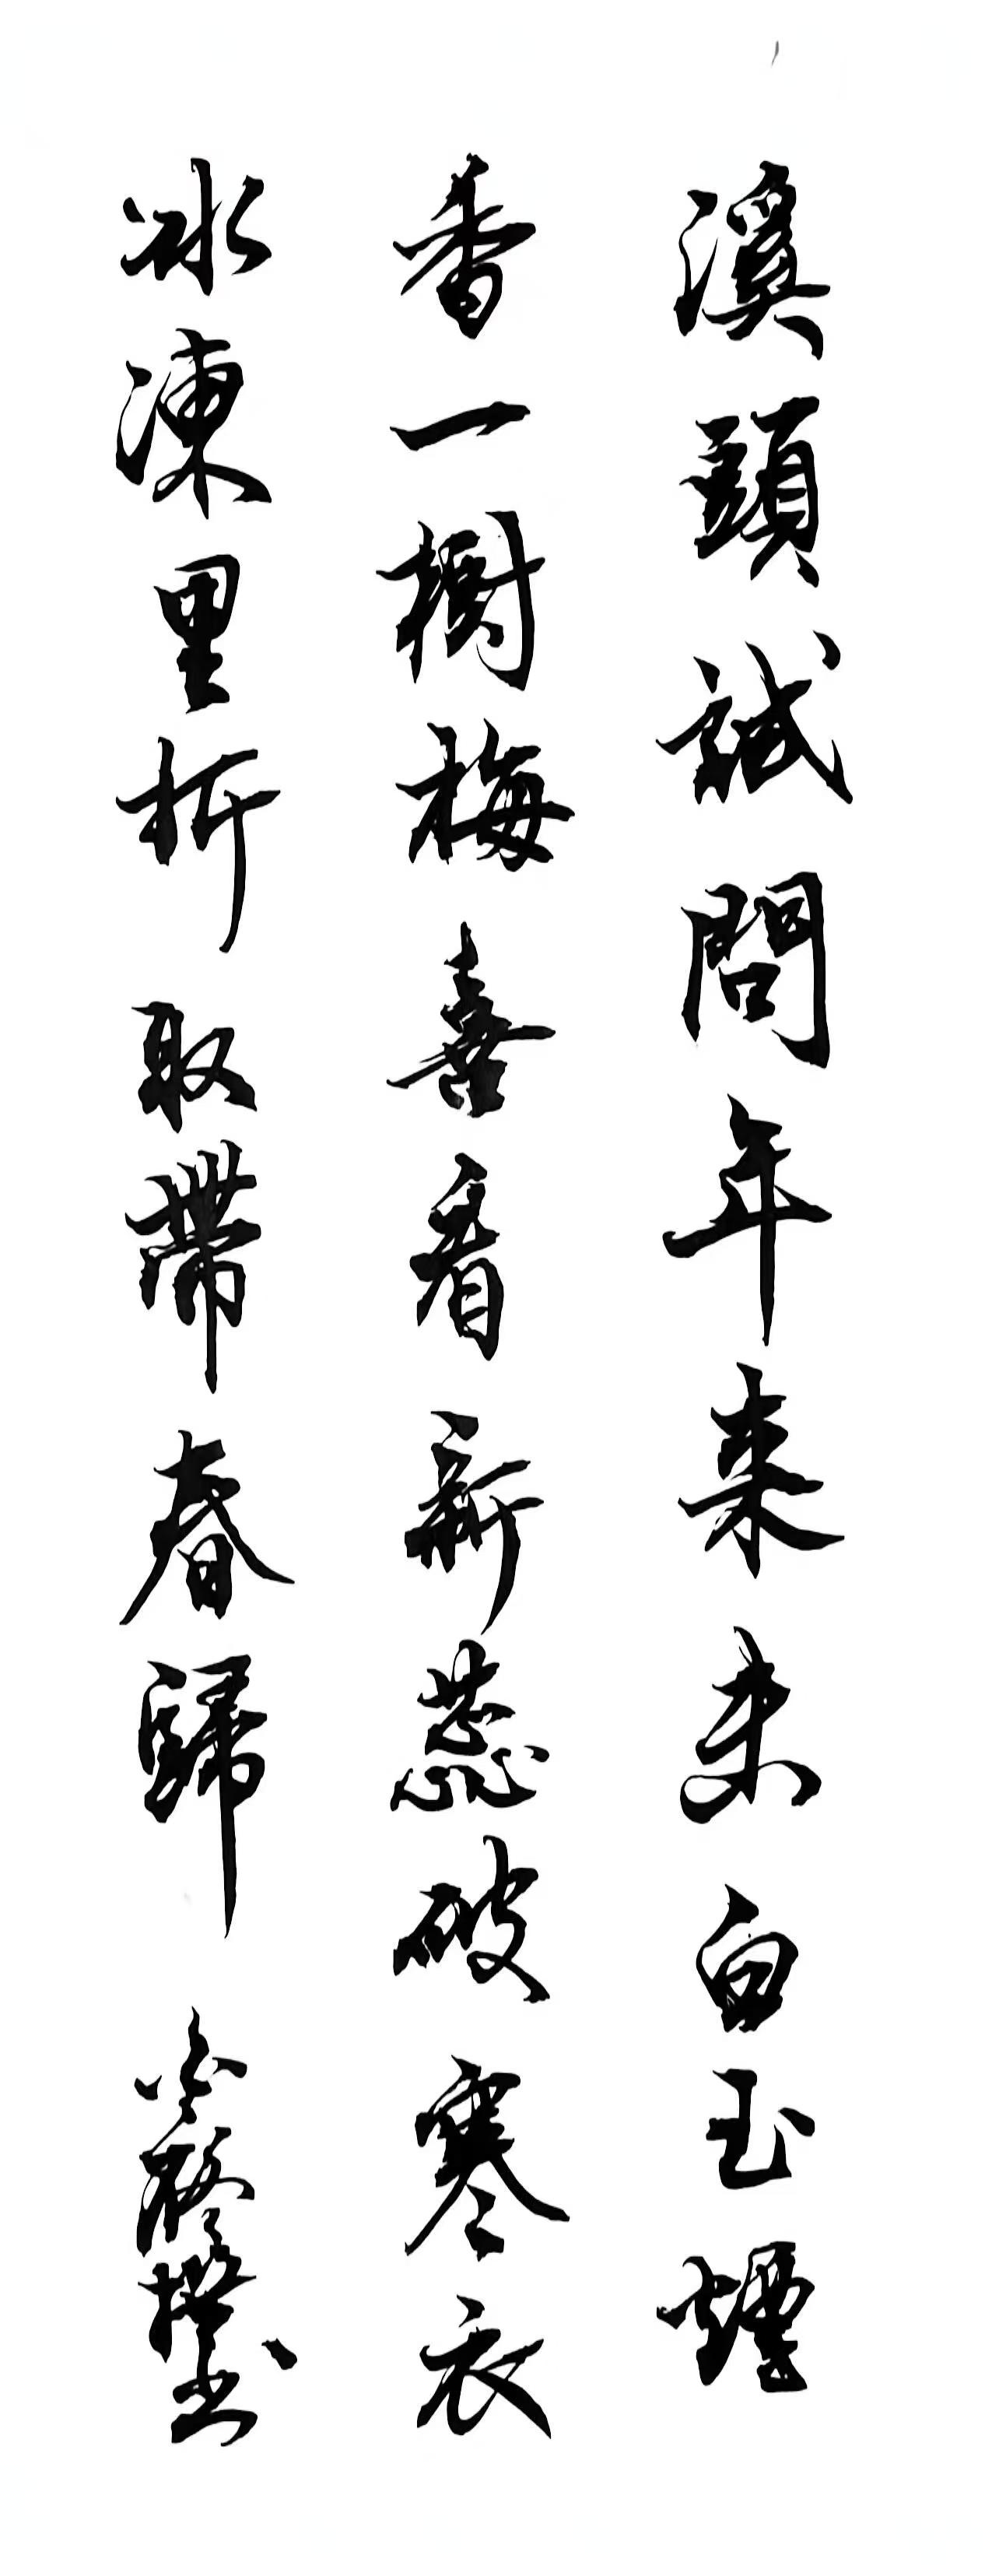 溪頭試問年来未白玉煙
香一樹梅喜看新蕊破寒衣
冰凍里折取帶春歸
书